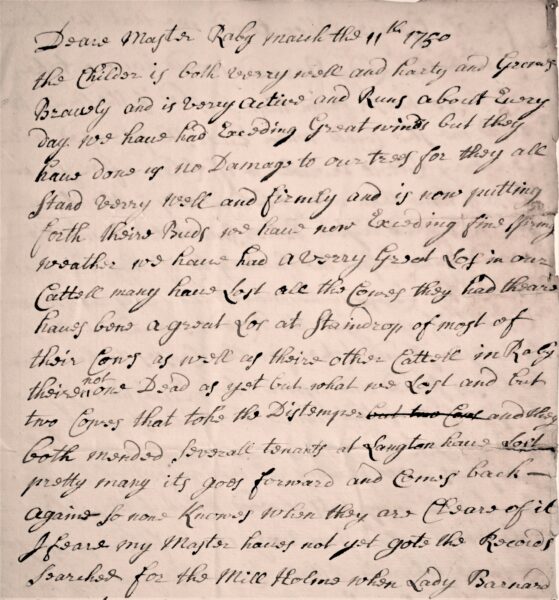 Deare Master Raby march the 11th 1750
the Childer is both verry well and harty and Grows
Bravely and is verry active and Runs about Every
day. we have had Exceding Great winds but they
have done us no Damage to our trees for they all
stand verry well and firmly and is now putting
forth theire Buds we have now Exceding fine spring
weather we have had a verry Great Los in our
Cattell many have Lost all the Cowes they had theare
haves bene a great Los at Staindrop of most of
their Cows as well as theire other Cattell in Raby
theire not one Dead as yet but what we Lost and but
two Cowes that toke the Distemper but two Cows and they
both mended severall tenants at Langton have Lost
pretty many its goes forward and Comes back
againe so none Knowes when they are Cleare of it
I feare my Master haves not yet gote the Records
searched for the Mill Holme when Lady Barnard